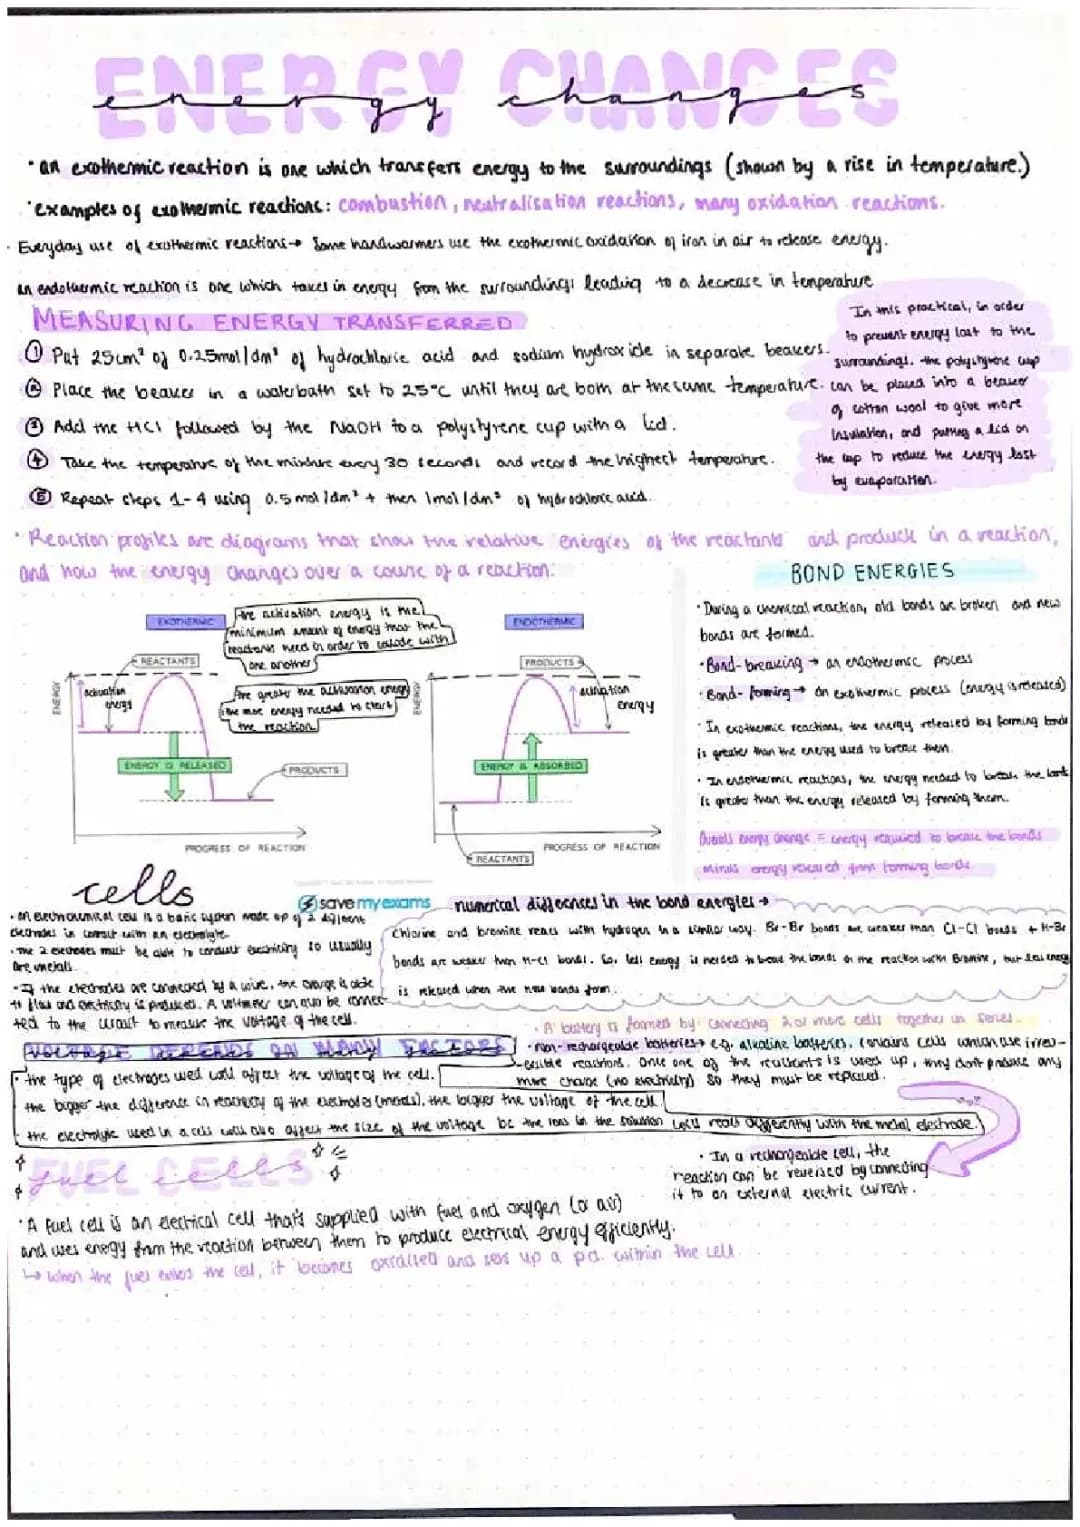 ENERGY CHANGES
energy changes
• an exothermic reaction is one which transfers energy to the surroundings (shown by a rise in temperature.)
• examples of exothermic reactions: combustion, neutralisation reactions, many oxidation reactions.
• Everyday use of exothermic reactions → Some handwarmers use the exothermic oxidation of iron in air to release energy.
an endothermic reaction is one which takes in energy from the surroundings leading to a decrease in temperature
MEASURING ENERGY TRANSFERRED
① Put 25cm³ of 0.25mol/dm³ of hydrochloric acid and sodium hydroxide in separate beakers.
② Place the beaker in a waterbath set to 25°C until they are both at the same temperature.
③ Add the HCl followed by the NaOH to a polystyrene cup with a lid.
④ Take the temperature of the mixture every 30 seconds and record the highest temperature.
⑤ Repeat steps 1-4 using 0.5 mol/dm³ + then 1mol/dm³ of hydrochloric acid.
In this practical, in order
to prevent energy lost to the
surroundings, the polystyrene cup
can be placed into a beaker
of cotton wool to give more
insulation, and putting a lid on
the cup to reduce the energy lost
by evaporation.
• Reaction profiles are diagrams that show the relative energies of the reactants and products in a reaction,
and how the energy changes over a course of a reaction.
EXOTHERMIC
the activation energy is the
minimum amount of energy that the
reactants need in order to collide with
one another
the greater the activation energy
the more energy needed to start
the reaction
REACTANTS
activation
energy
ENERGY
ENERGY IS RELEASED
PRODUCTS
PROGRESS OF REACTION
ENDOTHERMIC
PRODUCTS
activation
energy
ENERGY
ENERGY IS ABSORBED
REACTANTS
PROGRESS OF REACTION
savemyexams
BOND ENERGIES
• During a chemical reaction, old bonds are broken and new
bonds are formed.
• Bond-breaking → an endothermic process
• Bond-forming → an exothermic process (energy is released)
• In exothermic reactions, the energy released by forming bonds
is greater than the energy used to break them.
• In endothermic reactions, the energy needed to break the bonds
is greater than the energy released by forming them.
Overall energy change = energy required to break the bonds
minus energy released from forming bonds
cells
• an electrochemical cell is a basic system made up of 2 different
electrodes in contact with an electrolyte.
• The 2 electrodes must be able to conduct electricity so usually
are metals.
• If the electrodes are connected by a wire, the charge is able
to flow and electricity is produced. A voltmeter can also be connec-
ted to the circuit to measure the voltage of the cell.
numerical differences in the bond energies →
Chlorine and bromine react with hydrogen in a similar way. Br-Br bonds are weaker than Cl-Cl bonds + H-Br
bonds are weaker then H-Cl bonds. So, less energy is needed to break the bonds in the reaction with Bromine, but less energy
is released when the new bonds form.
VOLTAGE DEPENDS ON MANY FACTORS
• the type of electrodes used will affect the voltage of the cell.
the bigger the difference in reactivity of the electrodes (metals), the bigger the voltage of the cell
the electrolyte used in a cell will also affect the size of the voltage bc the ions in the solution react differently with the metal electrode.
• A battery is formed by connecting 2 or more cells together in series.
• non-rechargeable batteries → e.g. alkaline batteries. contains cells which use irrev-
ersible reactions. Once one of the reactants is used up, they don't produce any
more charge (no electricity) so they must be replaced.
• In a rechargeable cell, the
reaction can be reversed by connecting
it to an external electric current.
FUEL CELLS
fuel cells
• A fuel cell is an electrical cell thats supplied with fuel and oxygen (or air)
and uses energy from the reaction between them to produce electrical energy efficiently.
↳ when the fuel enters the cell, it becomes oxidised and sets up a p.d. within the cell.